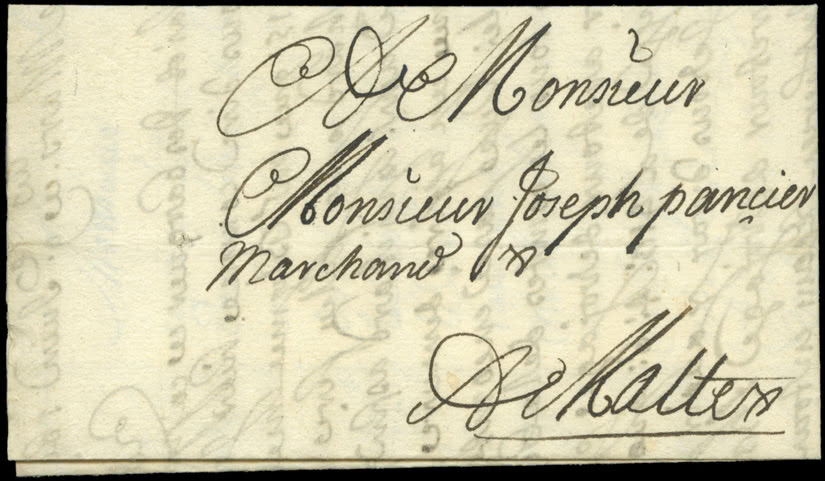 A Monsieur
Monsieur Joseph pançier
Marchand
A Malte